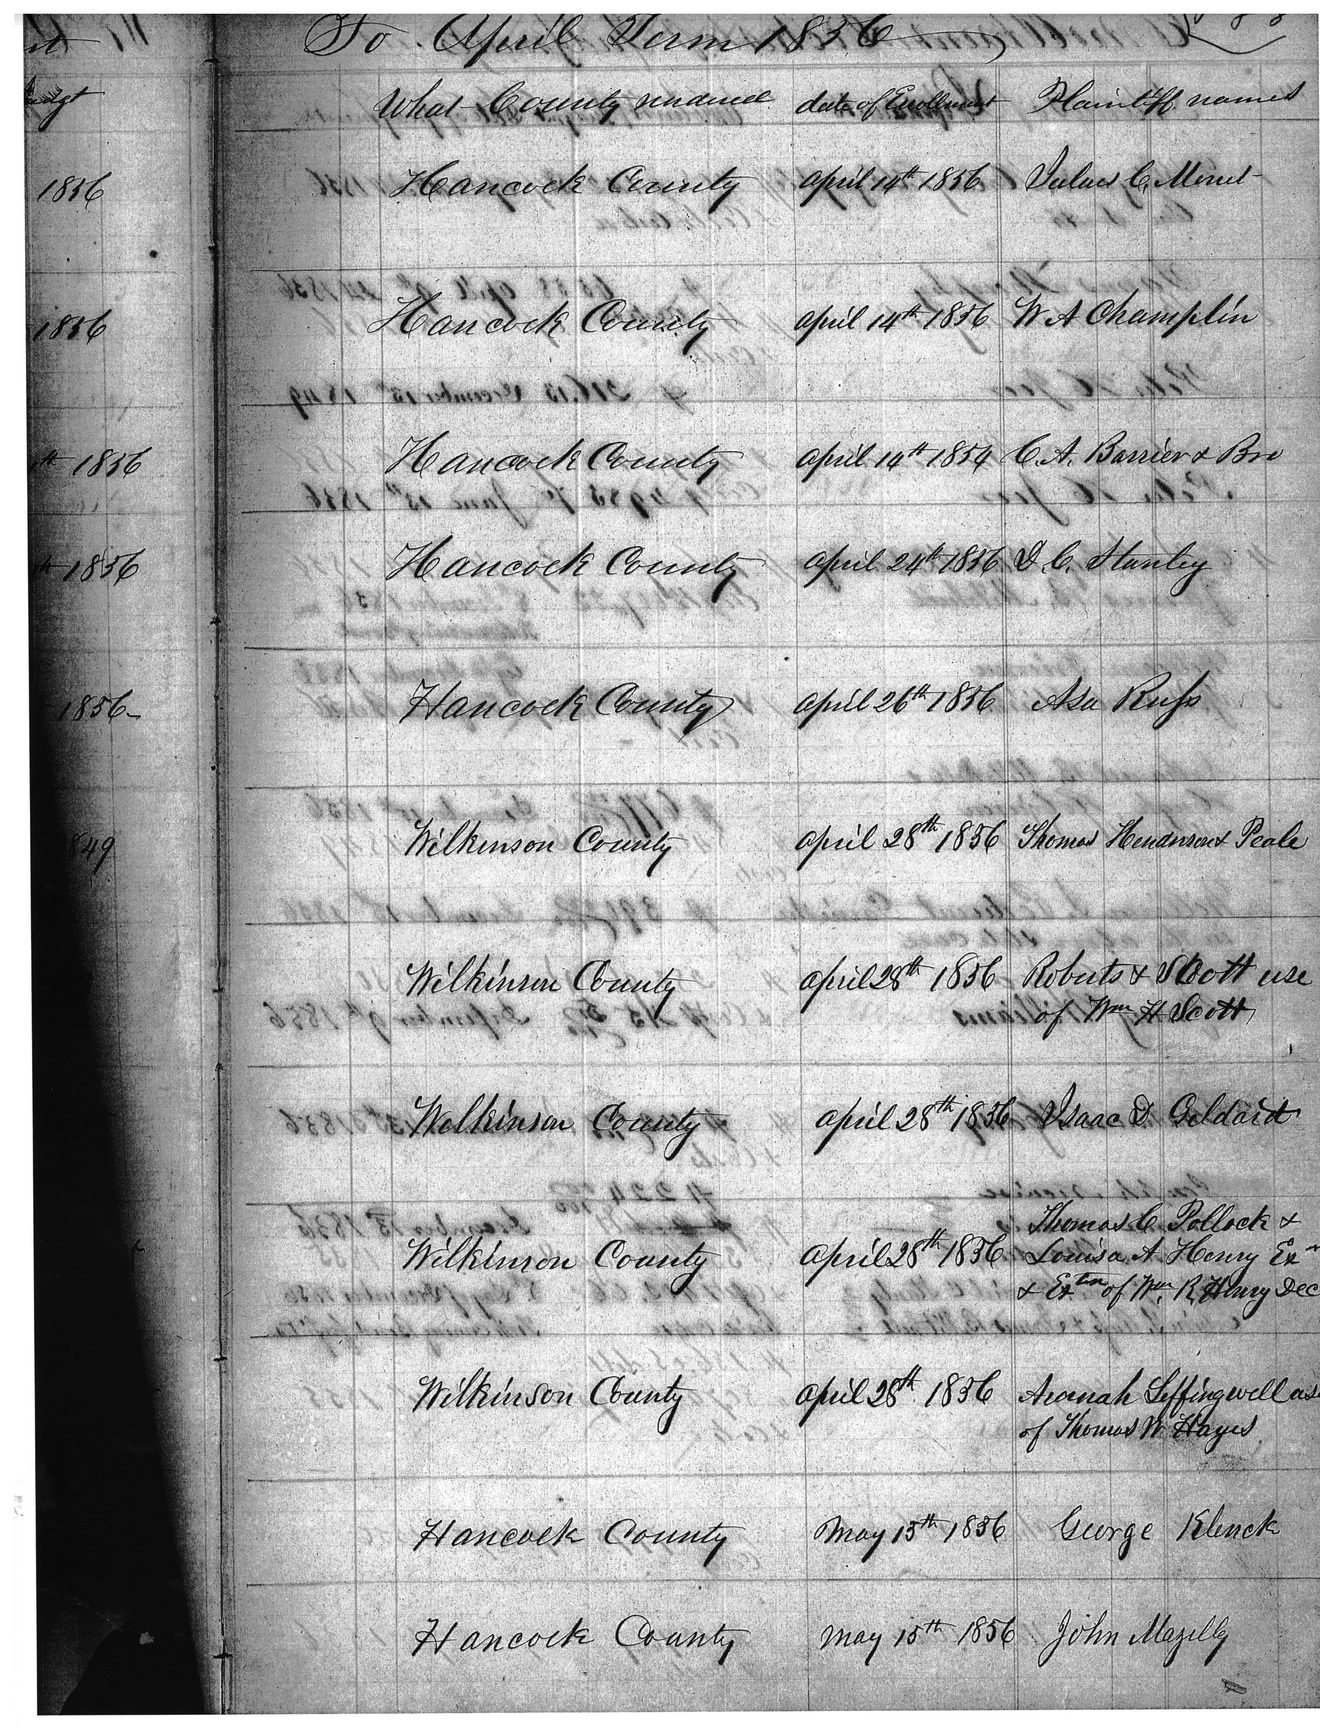 To April Term 1856
What County rendered date of Enrollment Plaintiff names
1856 Hancock County april 14th 1856 Julius C. Monet
1856 Hancock County april 14th 1856 W A Champlin
th 1856 Hancock County april 14th 1854 C. A. Barrier & Bro
1856 Hancock County april 24th 1856 D. C. Stanley
1856 Hancock County april 26th 1856 Asa Russ
849 Wilkinson County april 28th 1856 Thomas Henderson & Peale
Wilkinson County april 28th 1856 Roberts & Scott use
of Wm H Scott
Wilkinson County april 28th 1856 Isaac D Geldard
Thomas C. Pollock &
Wilkinson County april 28th 1856 Louisa A Henry Exr
& Extrx of Wm R Henry Dec
Wilkinson County april 28th 1856 Leffingwell use
of Thomas W Hayes
Hancock County may 15th 1856 George Klenck
Hancock County may 15th 1856 John Mazelly